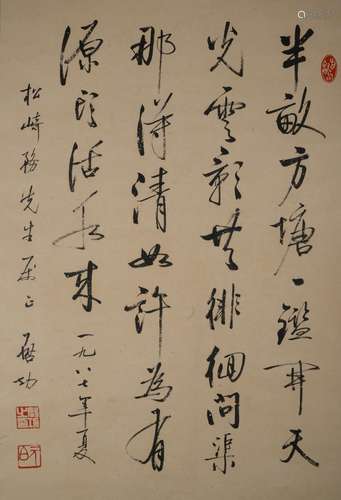 半畝方塘一鑑開天
光雲影共徘徊問渠
那得清如許為有
源頭活水來 一九八七年夏
松崎務先生屬正 啟功